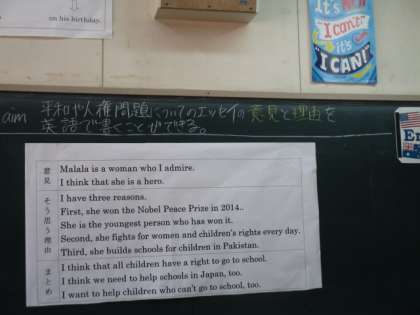 on his birthday.
It's
"I can't"
it's
"I CAN!"
aim 平和や人権問題についてのエッセイの意見と理由を
英語で書くことができる。
En
意見
Malala is a woman who I admire.
I think that she is a hero.
そう思う理由
I have three reasons.
First, she won the Nobel Peace Prize in 2014..
She is the youngest person who has won it.
Second, she fights for women and children's rights every day.
Third, she builds schools for children in Pakistan.
まとめ
I think that all children have a right to go to school.
I think we need to help schools in Japan, too.
I want to help children who can't go to school, too.